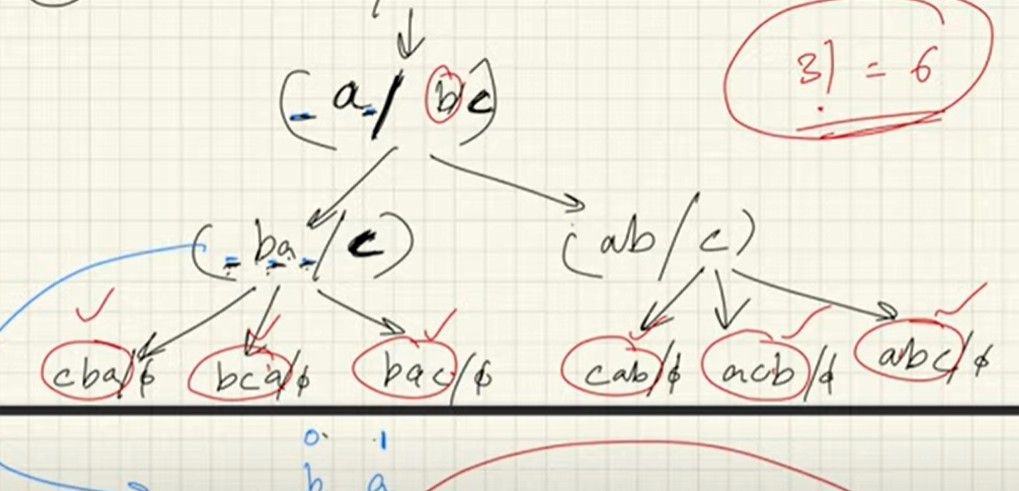 3! = 6
(_ a _ / bc)
(_ ba _ / c) (ab / c)
cba/ϕ bca/ϕ bac/ϕ cab/ϕ acb/ϕ abc/ϕ
0 1
b a